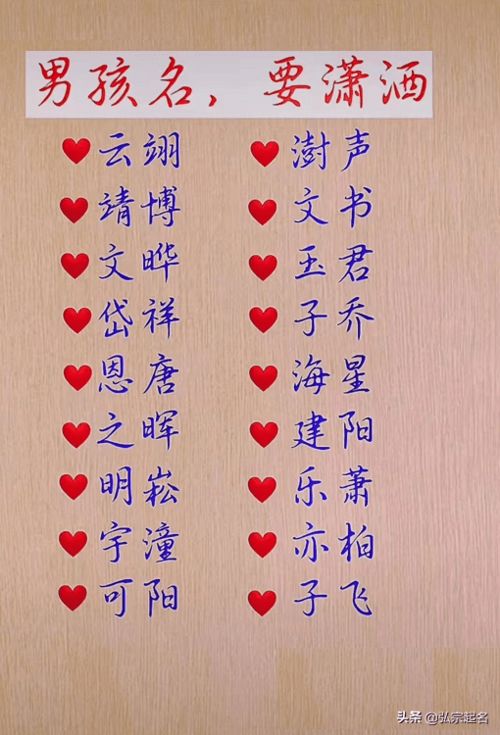 男孩名，要潇洒
云翊 澍声
靖博 文书
文晔 玉君
岱祥 子乔
恩唐 海星
之晖 建阳
明崧 乐萧
宇潼 亦柏
可阳 子飞
头条 @弘宗起名